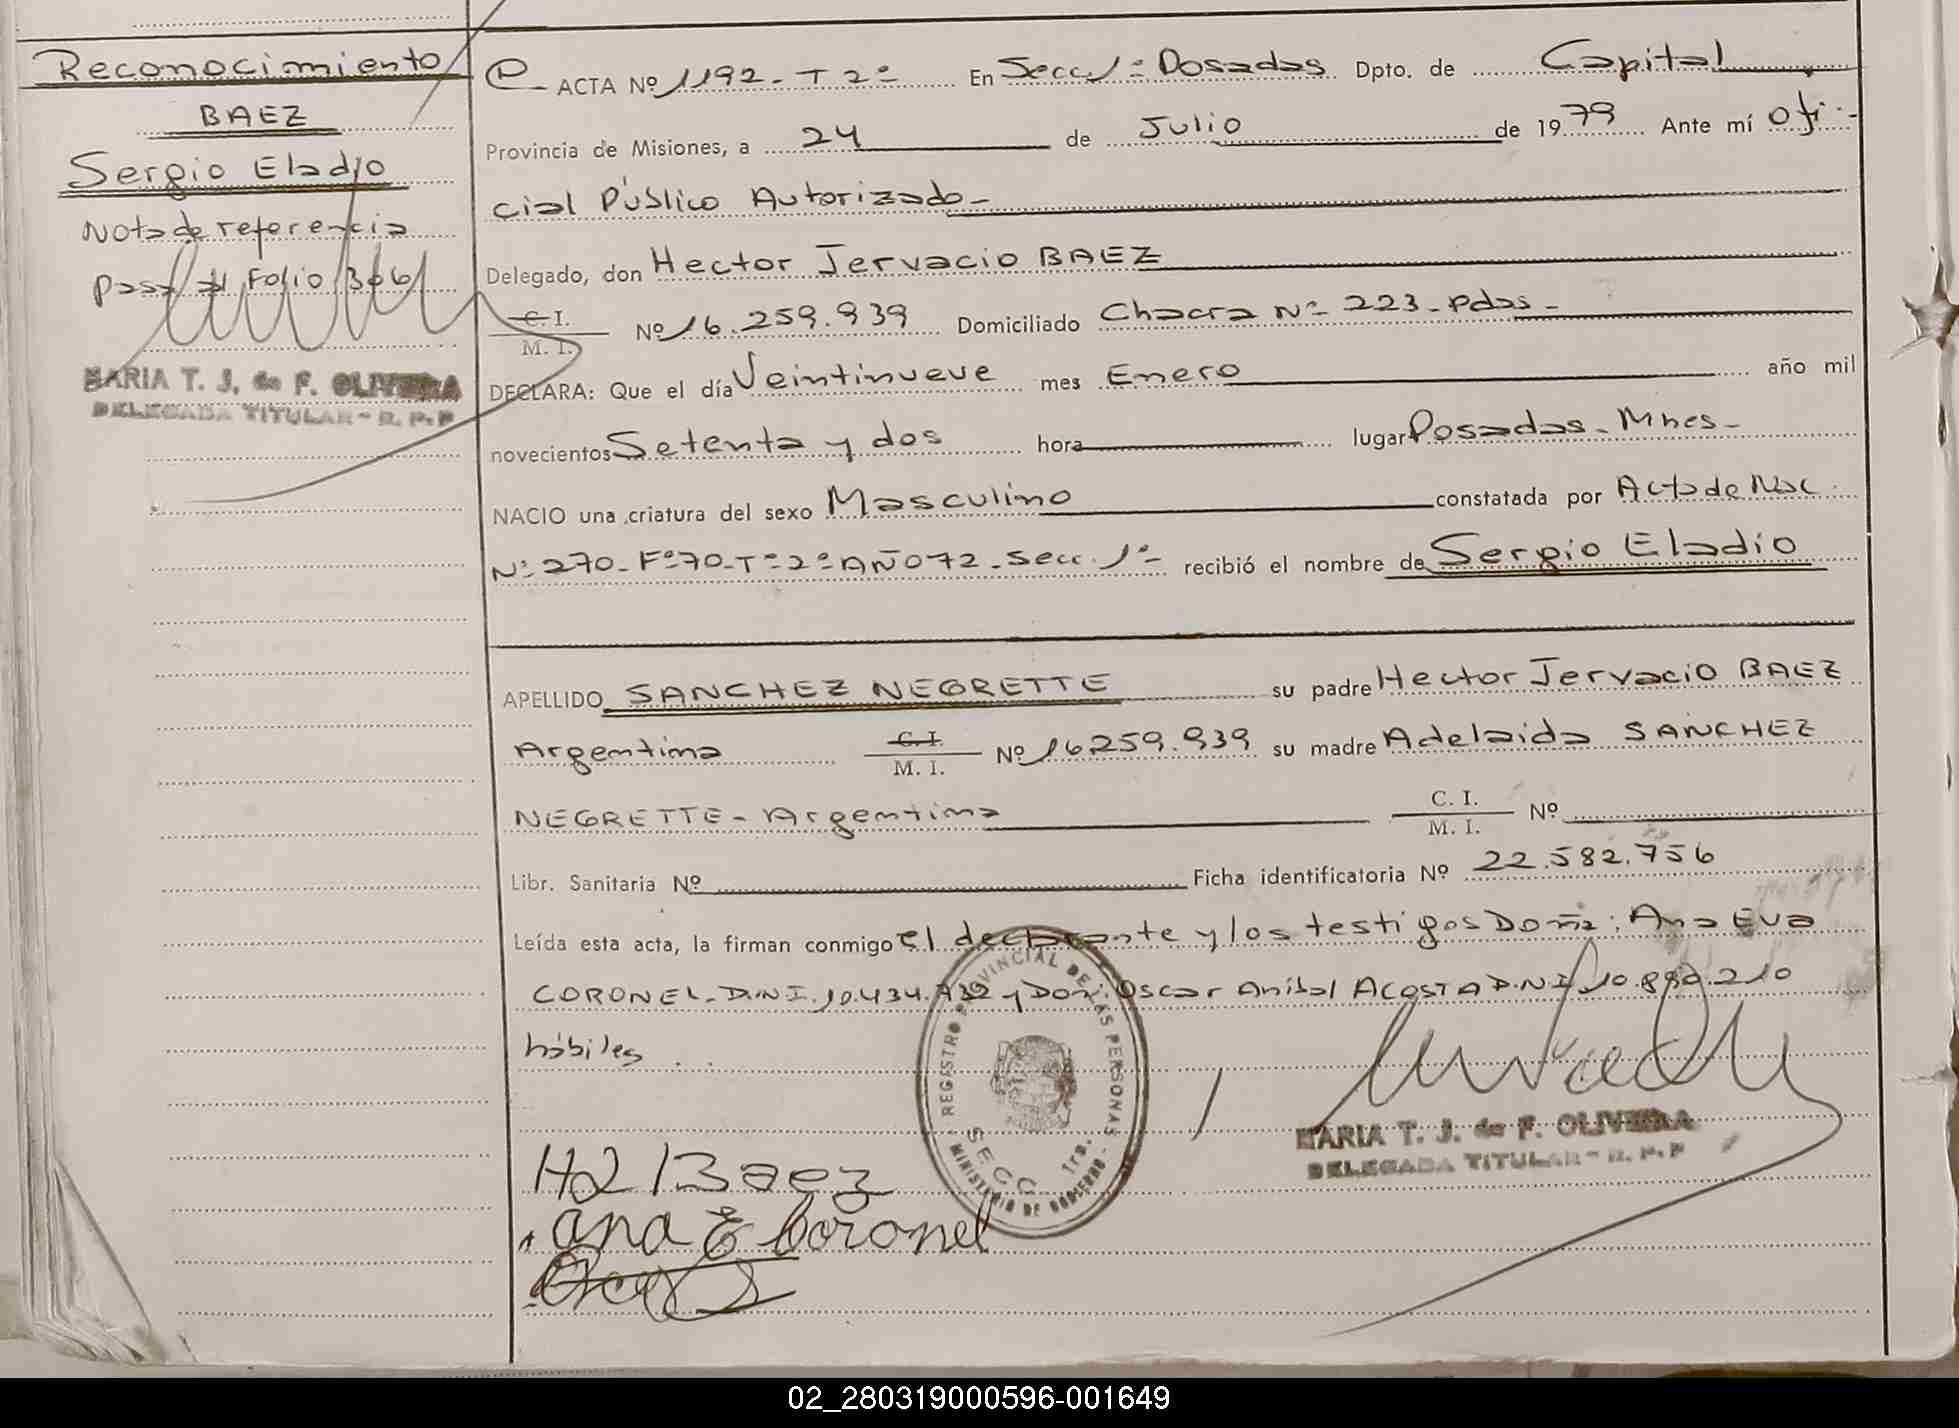 Reconocimiento
BAEZ
Sergio Eladio
Nota de referencia
pasa al Folio 306
MARIA T. J. de F. OLIVEIRA
DELEGADA TITULAR - R. P. P
ACTA Nº 1192 - T 2º En Secc. 1º Posadas Dpto. de Capital
Provincia de Misiones, a 24 de Julio de 1979 Ante mí Ofi-
cial Público Autorizado -
Delegado, don Hector Jervacio BAEZ
C. I.
M. I. Nº 16.259.939 Domiciliado Chacra Nº 223 - Pdas -
DECLARA: Que el día Veintinueve mes Enero año mil
novecientos Setenta y dos hora lugar Posadas - Mnes -
NACIO una criatura del sexo Masculino constatada por Acta de Nac.
Nº 270 - Fº 70 - Tº 2º AÑO 72 - Secc. 1º - recibió el nombre de Sergio Eladio
APELLIDO SANCHEZ NEGRETTE su padre Hector Jervacio BAEZ
Argentina C. I.
M. I. Nº 16259.939 su madre Adelaida SANCHEZ
NEGRETTE - Argentina C. I.
M. I. Nº
Libr. Sanitaria Nº Ficha identificatoria Nº 22.582.756
Leída esta acta, la firman conmigo el declarante y los testigos Doña: Ana Eva
CORONEL - D.N.I. 10.434.732 y Don: Oscar Anibal ACOSTA D.N.I. 10.890.210
hábiles
REGISTRO PROVINCIAL DE LAS PERSONAS
MINISTERIO DE GOBIERNO
SECC 1ra.
MARIA T. J. de F. OLIVEIRA
DELEGADA TITULAR - R. P. P
Baez
Ana E Coronel
02_280319000596-001649